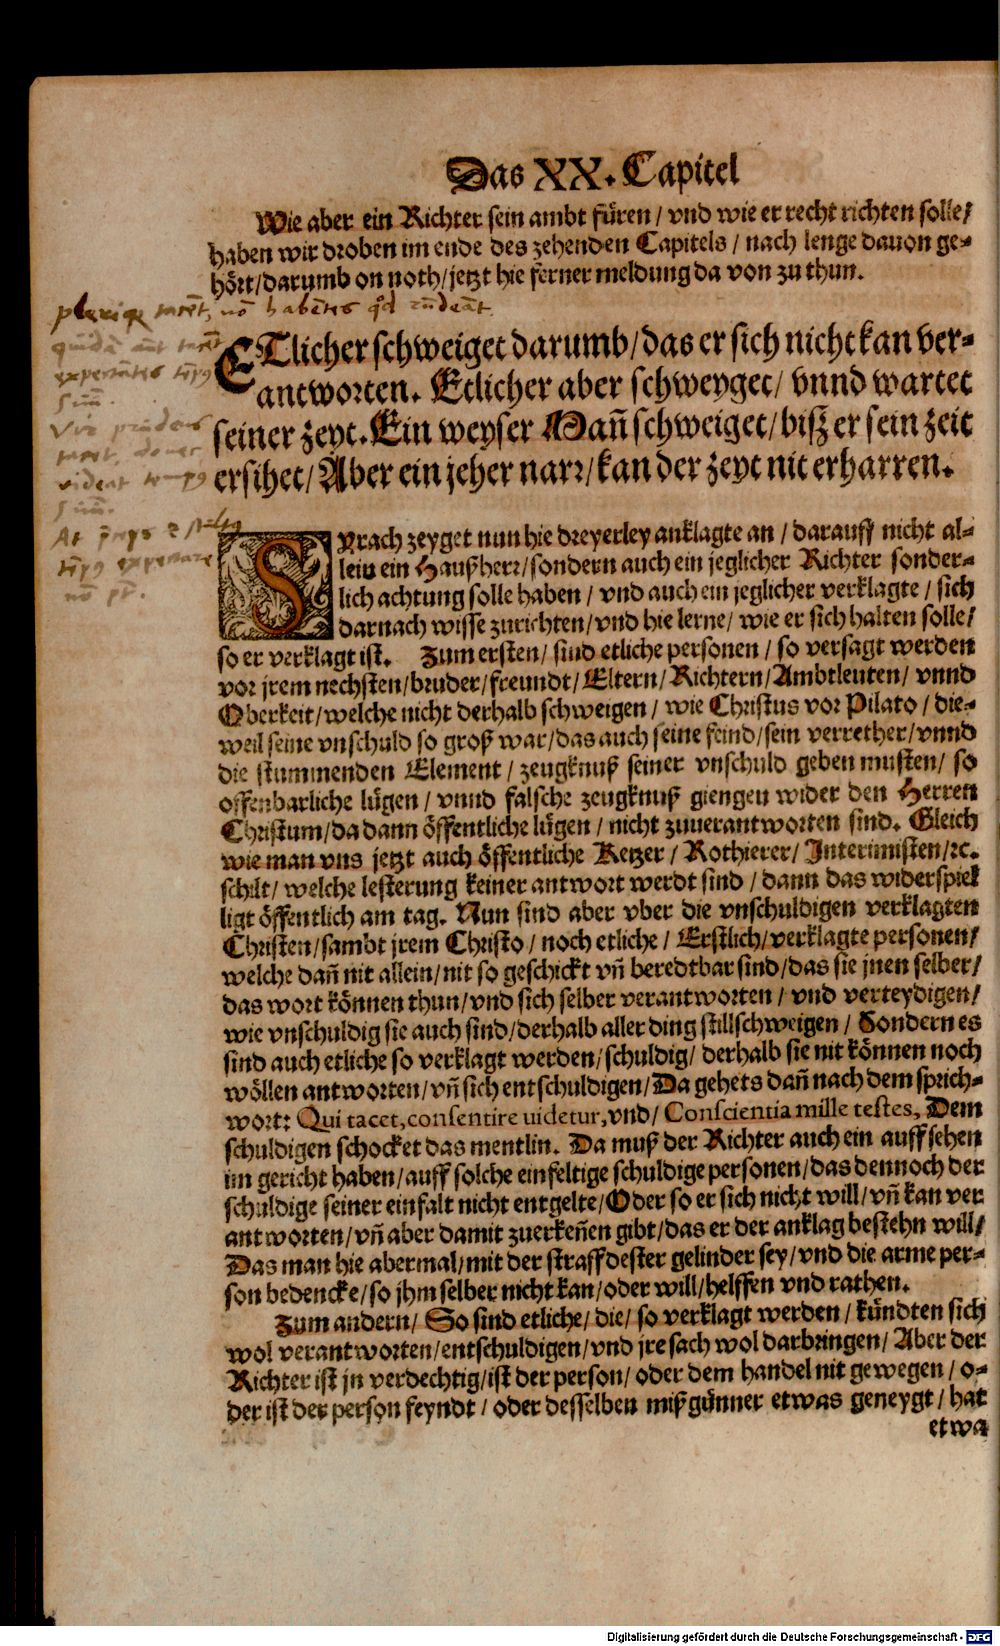 Das XX. Capitel
Wie aber ein Richter sein ambt füren / vnd wie er recht richten solle /
haben wir droben im ende des zehenden Capitels / nach lenge dauon ge-
hört / darumb on noth / jetzt hie ferner meldung da von zu thun.
plerique tacent, nō habētes qd
ETlicher schweiget darumb / das er sich nicht kan ver-
antworten. Etlicher aber schweyget / vnnd wartet
seiner zeyt. Ein weyser Mañ schweiget / bisz er sein zeit
ersihet / Aber ein jeher narr / kan der zeyt nit erharren.
quidā aūt tacēt
expectātes tēpus
suū.
Vir prudens
tacet, donec
videat tempus
suū.
At
tēpus expectare
nō pt.
SYrach zeyget nun hie dreyerley anklagte an / darauff nicht al-
lein ein Haußherr / sondern auch ein jeglicher Richter sonder-
lich achtung solle haben / vnd auch ein jeglicher verklagte / sich
darnach wisse zurichten / vnd hie lerne / wie er sich halten solle /
so er verklagt ist. Zum ersten / sind etliche personen / so versagt werden
vor jrem nechsten / bruder / freundt / Eltern / Richtern / Ambtleuten / vnnd
Oberkeit / welche nicht derhalb schweigen / wie Christus vor Pilato / die-
weil seine vnschuld so groß war / das auch seine feind / sein verrether / vnnd
die stummenden Element / zeugknuß seiner vnschuld geben musten / so
offenbarliche lügen / vnnd falsche zeugknuß giengen wider den Herren
Christum / da dann öffentliche lügen / nicht zuuerantworten sind. Gleich
wie man vns jetzt auch öffentliche Ketzer / Rothierer / Interimisten / ꝛc.
schilt / welche lesterung keiner antwort werdt sind / dann das widerspiel
ligt öffentlich am tag. Nun sind aber vber die vnschuldigen verklagten
Christen / sambt jrem Christo / noch etliche / Erstlich / verklagte personen /
welche dañ nit allein / nit so geschickt vñ beredtbar sind / das sie jnen selber /
das wort können thun / vnd sich selber verantworten / vnd verteydigen /
wie vnschuldig sie auch sind / derhalb aller ding stillschweigen / Sondern es
sind auch etliche so verklagt werden / schuldig / derhalb sie nit können noch
wöllen antworten / vñ sich entschuldigen / Da gehets dañ nach dem sprich-
wort: Qui tacet, consentire uidetur, vnd / Conscientia mille testes, Dem
schuldigen schocket das mentlin. Da muß der Richter auch ein auffsehen
im gericht haben / auff solche einfeltige schuldige personen / das dennoch der
schuldige seiner einfalt nicht entgelte / Oder so er sich nicht will / vñ kan ver
antworten / vñ aber damit zuerkeñen gibt / das er der anklag bestehn will /
Das man hie abermal / mit der straff dester gelinder sey / vnd die arme per-
son bedencke / so jhm selber nicht kan / oder will / helffen vnd rathen.
Zum andern / So sind etliche / die / so verklagt werden / kündten sich
wol verantworten / entschuldigen / vnd jre sach wol darbringen / Aber der
Richter ist jn verdechtig / ist der person / oder dem handel nit gewegen / o-
der ist der person feyndt / oder desselben mißgünner etwas geneygt / hat
etwa
Digitalisierung gefördert durch die Deutsche Forschungsgemeinschaft - DFG